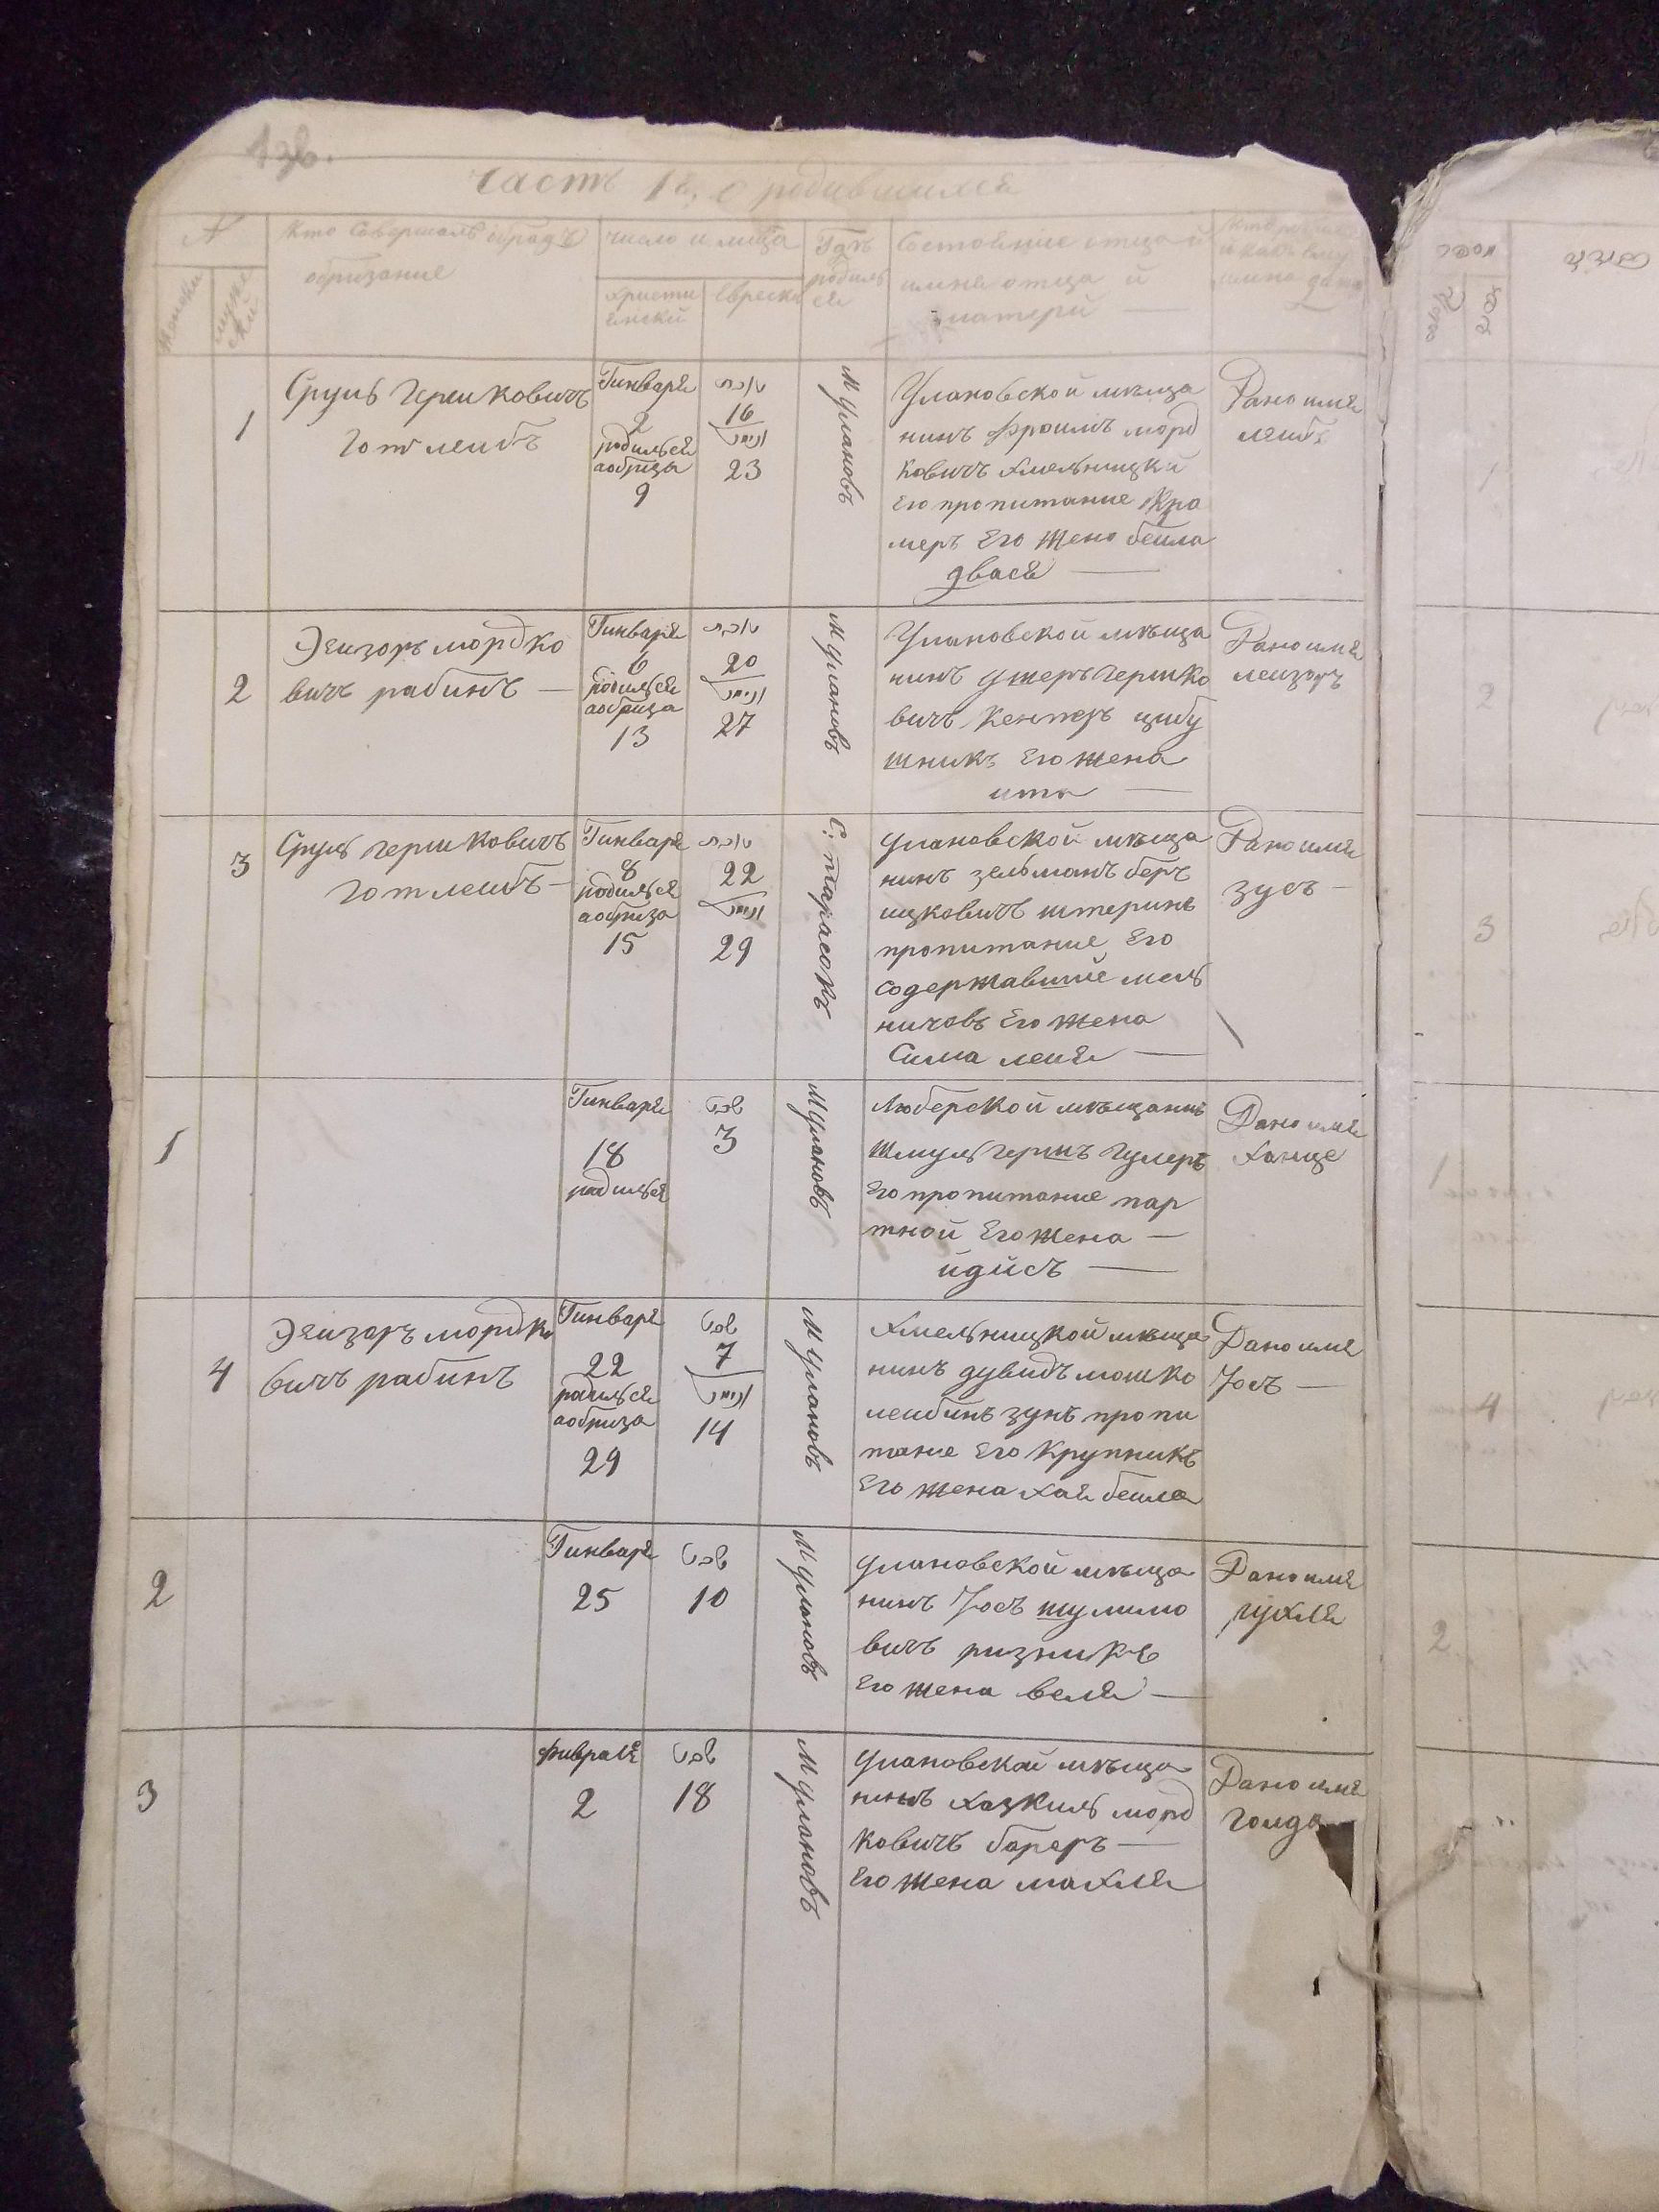 Часть 1я, о родившихся
№
Кто Совершалъ обрадъ
обризание
число и мица
Гдъ
родилься
Состояние отца и
имне отца и
матери —
имно дано
женски
муже ский
христи
Еврески
янский
1
Сруль Гершковичъ
Готлеибъ
Гинваря
2
родилься
аобриза
9
טבת
16
23
М Улановъ
Улановской мъща
нинъ Фроимъ морд
ковичъ Хмельницки
Его пропитание Кра
меръ Его жено беила
двася —
Дано имя
леибъ
2
Элизоръ мордко
вичъ рабинъ —
Гинваря
6
родилься
аобриза
13
טבת
20
27
М Улановъ
Улановской мъща
нинъ ушеръ Гершко
вичъ Кентеръ цибу
шникъ Его жена
ита —
Дано имя
леизоръ
3
Сруль гершковичъ
Готлеибъ —
Гинваря
8
родилься
аобриза
15
טבת
22
29
С: тарасокъ
Улановской мъща
нинъ зельманъ беръ
ицковичъ штеринъ
пропитание Его
содержавшие мель
ничовъ Его жена
Сима леия —
Дано имя
зусъ —
1
Гинваря
18
родилься
שבט
3
М Улановъ
Люберской мъщанинъ
шмуль гершъ Гулеръ
Его пропитание пар
тной Его жена —
Идисъ —
Дано имя
Ханце
4
Элизоръ мордко
вичъ рабинъ
Гинваря
22
родилься
аобриза
29
שבט
7
14
М Улановъ
Хмельницкой мъща
нинъ дувидъ мошко
леибинъзунъ пропи
тание Его Крупникъ
Его жена Хая беила
Дано имя
Иосъ —
2
Гинваря
25
שבט
10
М Улановъ
Улановской мъща
нинъ Иосъ шулимо
вичъ ризникъ
Его жена веля —
Дано имя
рухля
3
Фивраля
2
שבט
18
М Улановъ
Улановскаи мъща
нинъ Хаскиль морд
ковичъ бареръ —
Его жена махля
Дано имя
Голда